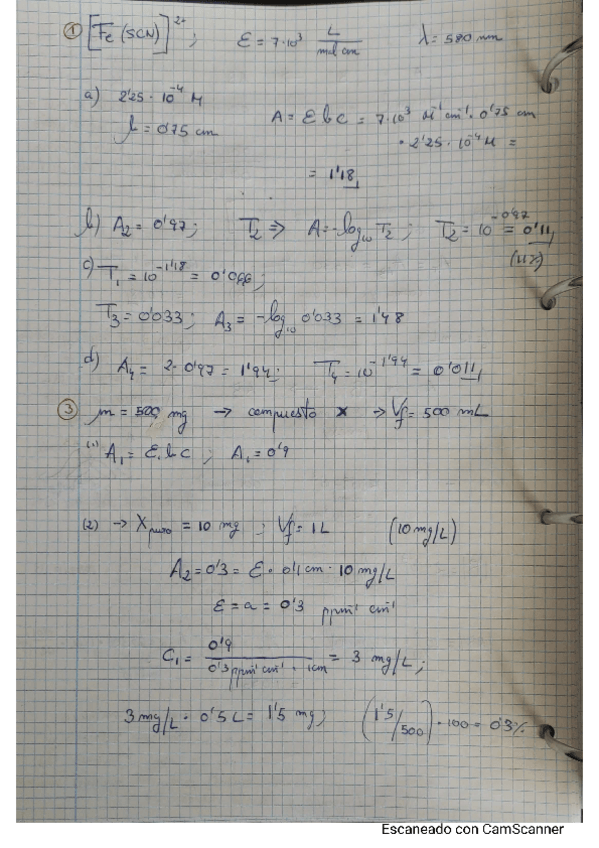 ① [Fe(SCN)]²⁺ ; ε = 7·10³ L/mol cm λ = 580 nm
a) 2'25·10⁻⁴ M
l = 0'75 cm
A = ε b c = 7·10³ M⁻¹ cm⁻¹ · 0'75 cm
· 2'25·10⁻⁴ M =
= 1'18
b) A₂ = 0'97 ; T₂ ⇒ A = -log₁₀ T₂ ; T₂ = 10^-0'97 = 0'11
(11%)
c) T₁ = 10^-1'18 = 0'066 ;
T₃ = 0'033 ; A₃ = -log₁₀ 0'033 = 1'48
d) A₄ = 2·0'97 = 1'94 ; T₄ = 10^-1'94 = 0'011
③ m = 500 mg → compuesto X → Vf = 500 mL
(1) A₁ = ε b c ; A₁ = 0'9
(2) → X puro = 10 mg ; Vf = 1L (10 mg/L)
A₂ = 0'3 = ε · 0'1 cm · 10 mg/L
ε = a = 0'3 ppm⁻¹ cm⁻¹
C₁ = 0'9 / 0'3 ppm⁻¹ cm⁻¹ · 1cm = 3 mg/L ;
3 mg/L · 0'5 L = 1'5 mg ; (1'5/500) · 100 = 0'3%
Escaneado con CamScanner